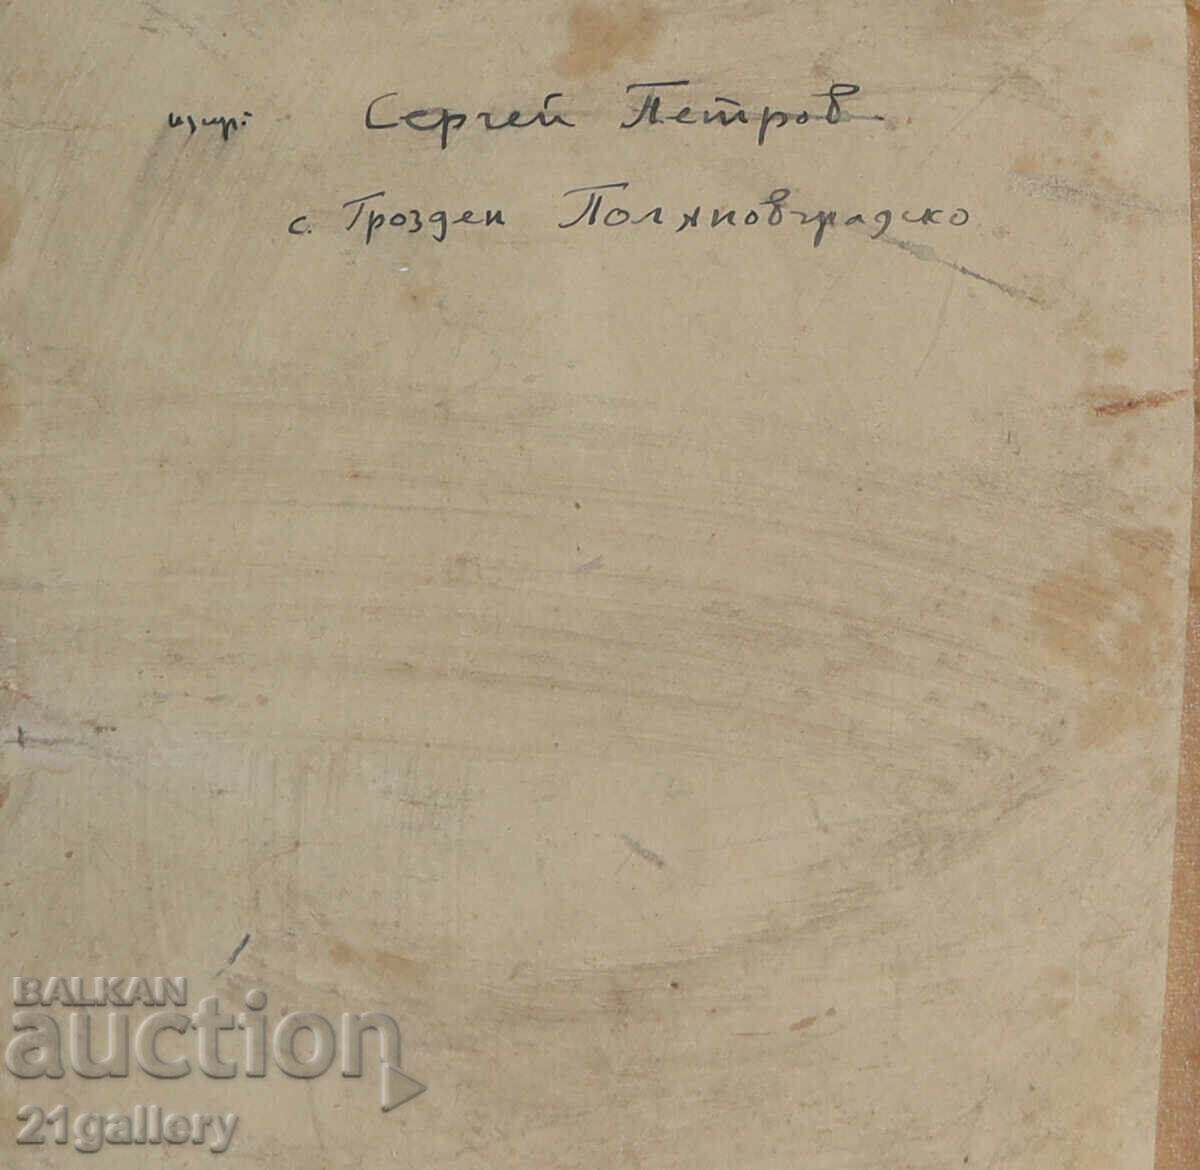 Сергей Петров
с. Грозден Поляновградско
BALKAN
auction
21gallery